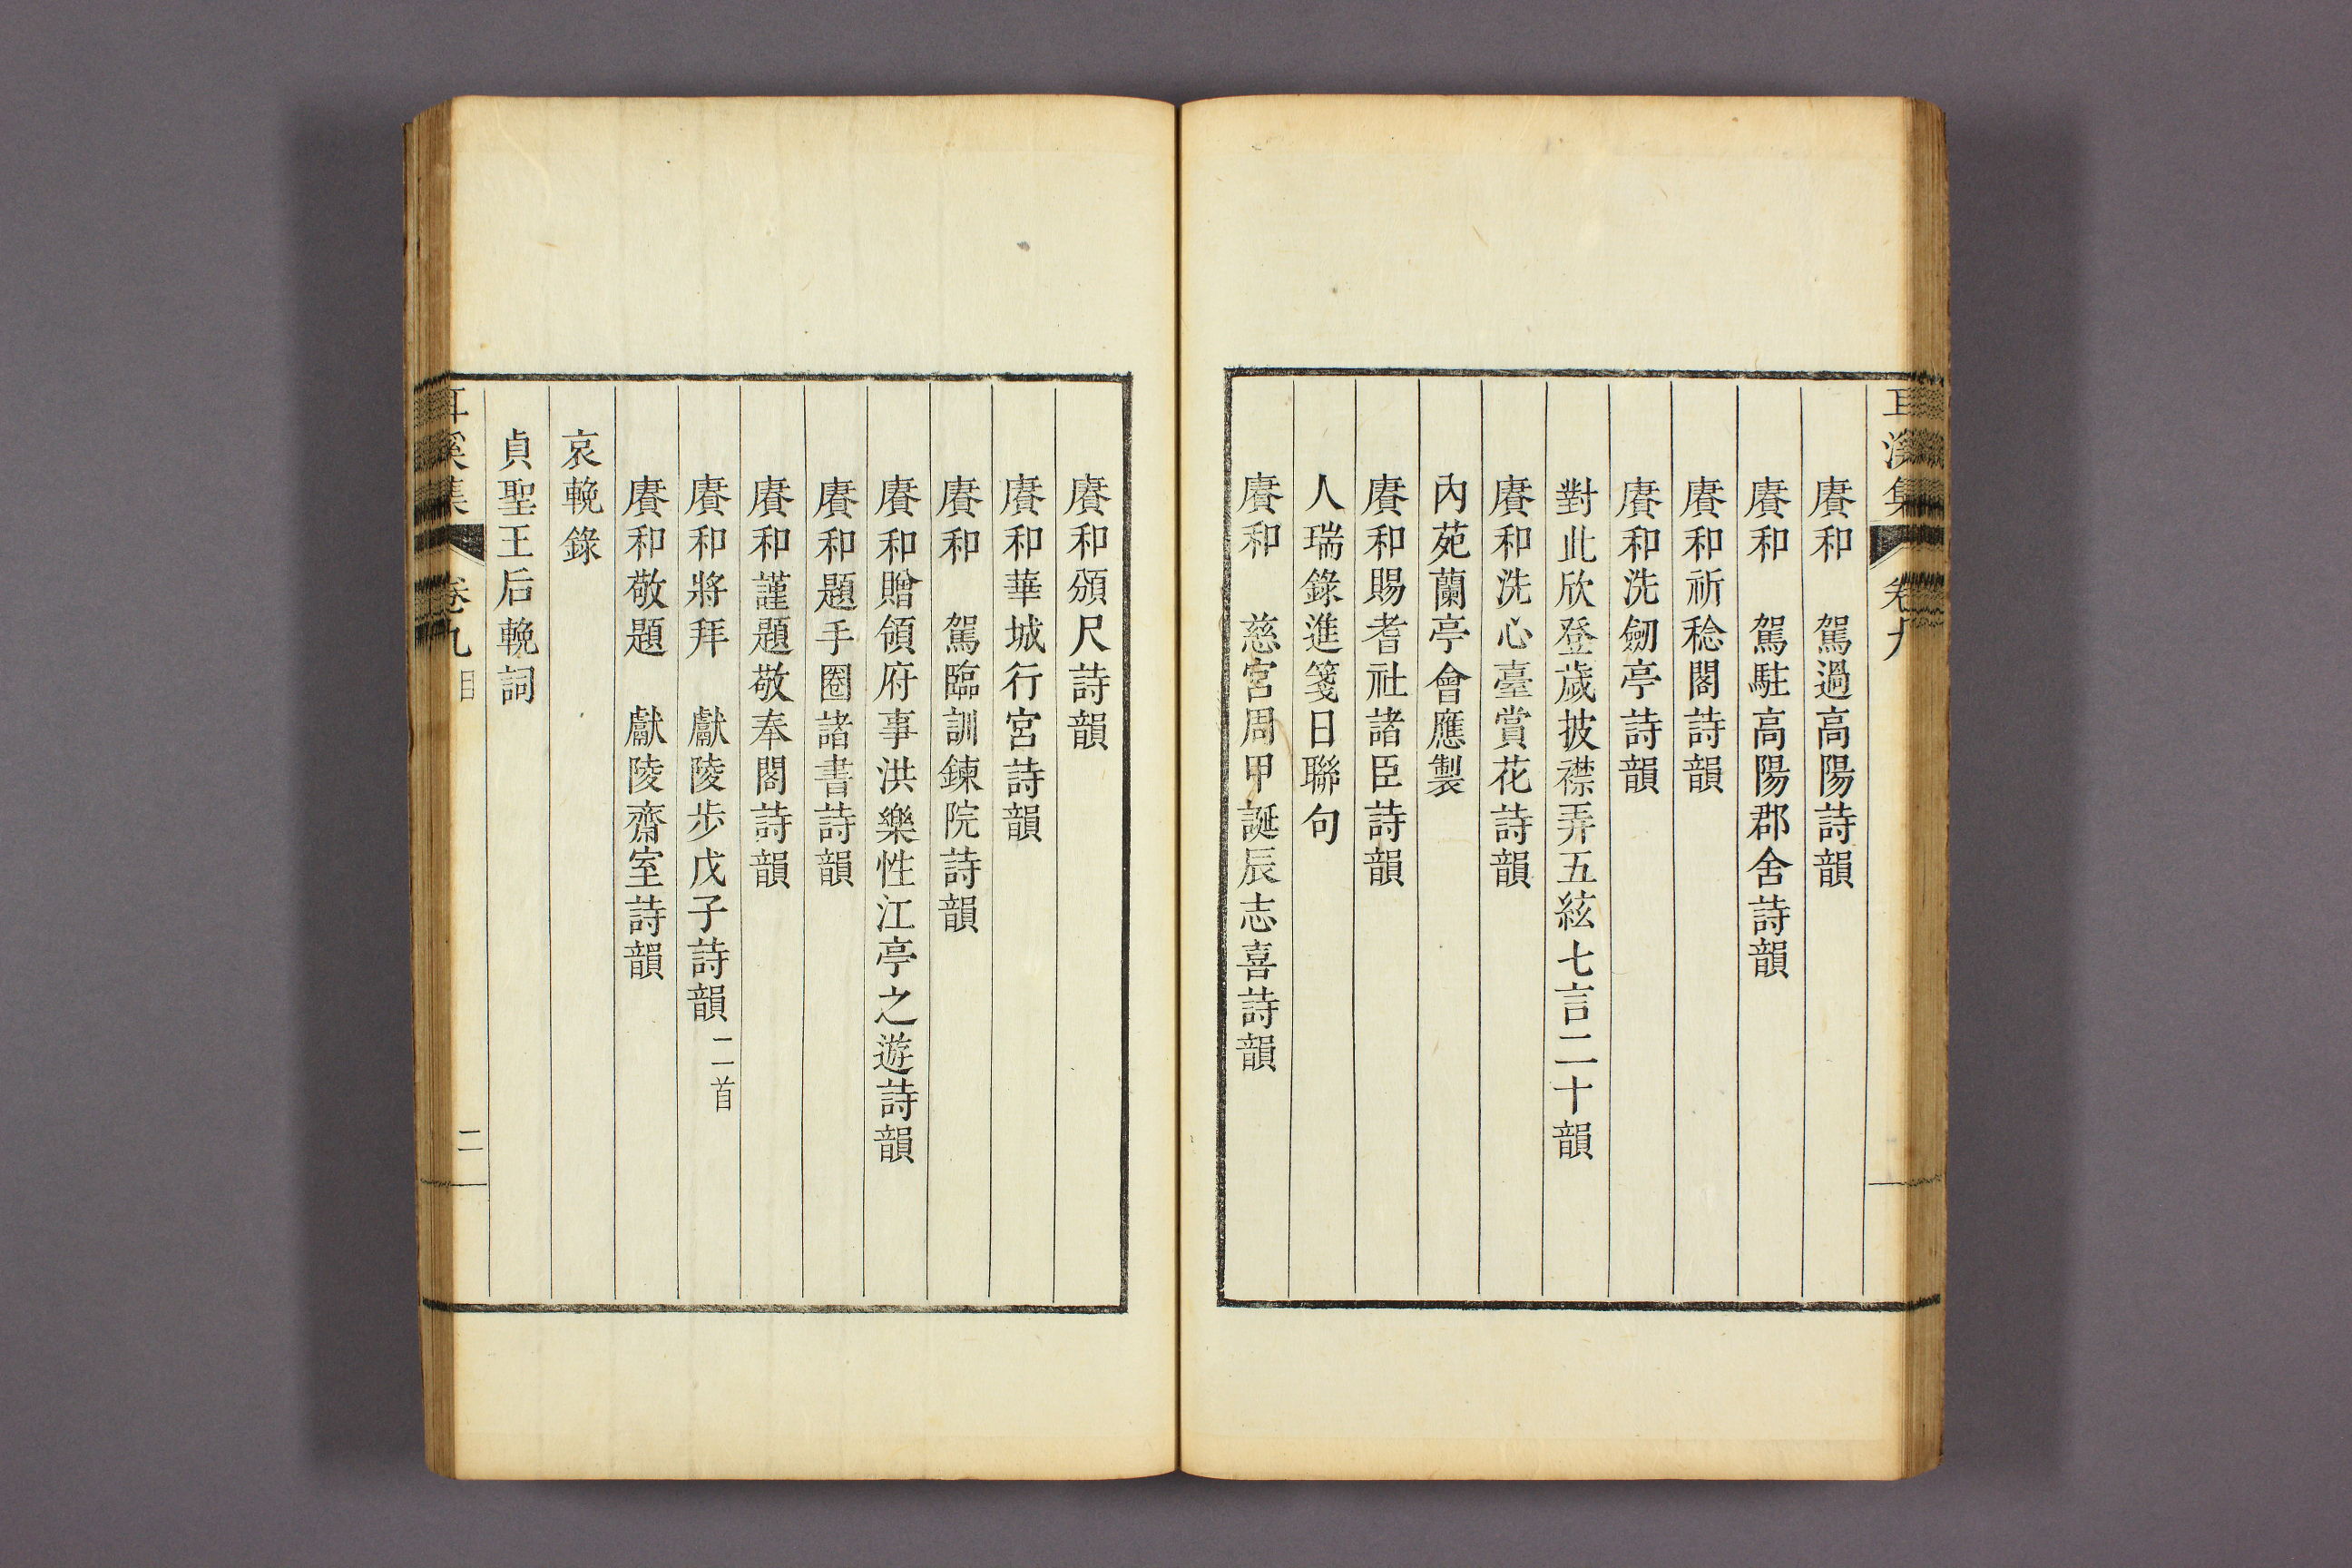 耳溪集 卷九
賡和　駕過高陽詩韻
賡和　駕駐高陽郡舍詩韻
賡和祈稔閣詩韻
賡和洗劒亭詩韻
對此欣登歲披襟弄五絃七言二十韻
賡和洗心臺賞花詩韻
內苑蘭亭會應製
賡和賜耆社諸臣詩韻
人瑞錄進箋日聯句
賡和　慈宮周甲誕辰志喜詩韻
賡和頒尺詩韻
賡和華城行宮詩韻
賡和　駕臨訓鍊院詩韻
賡和贈領府事洪樂性江亭之遊詩韻
賡和題手圈諸書詩韻
賡和謹題敬奉閣詩韻
賡和將拜　獻陵步戊子詩韻二首
賡和敬題　獻陵齋室詩韻
哀輓錄
貞聖王后輓詞
耳溪集 卷九 目 二